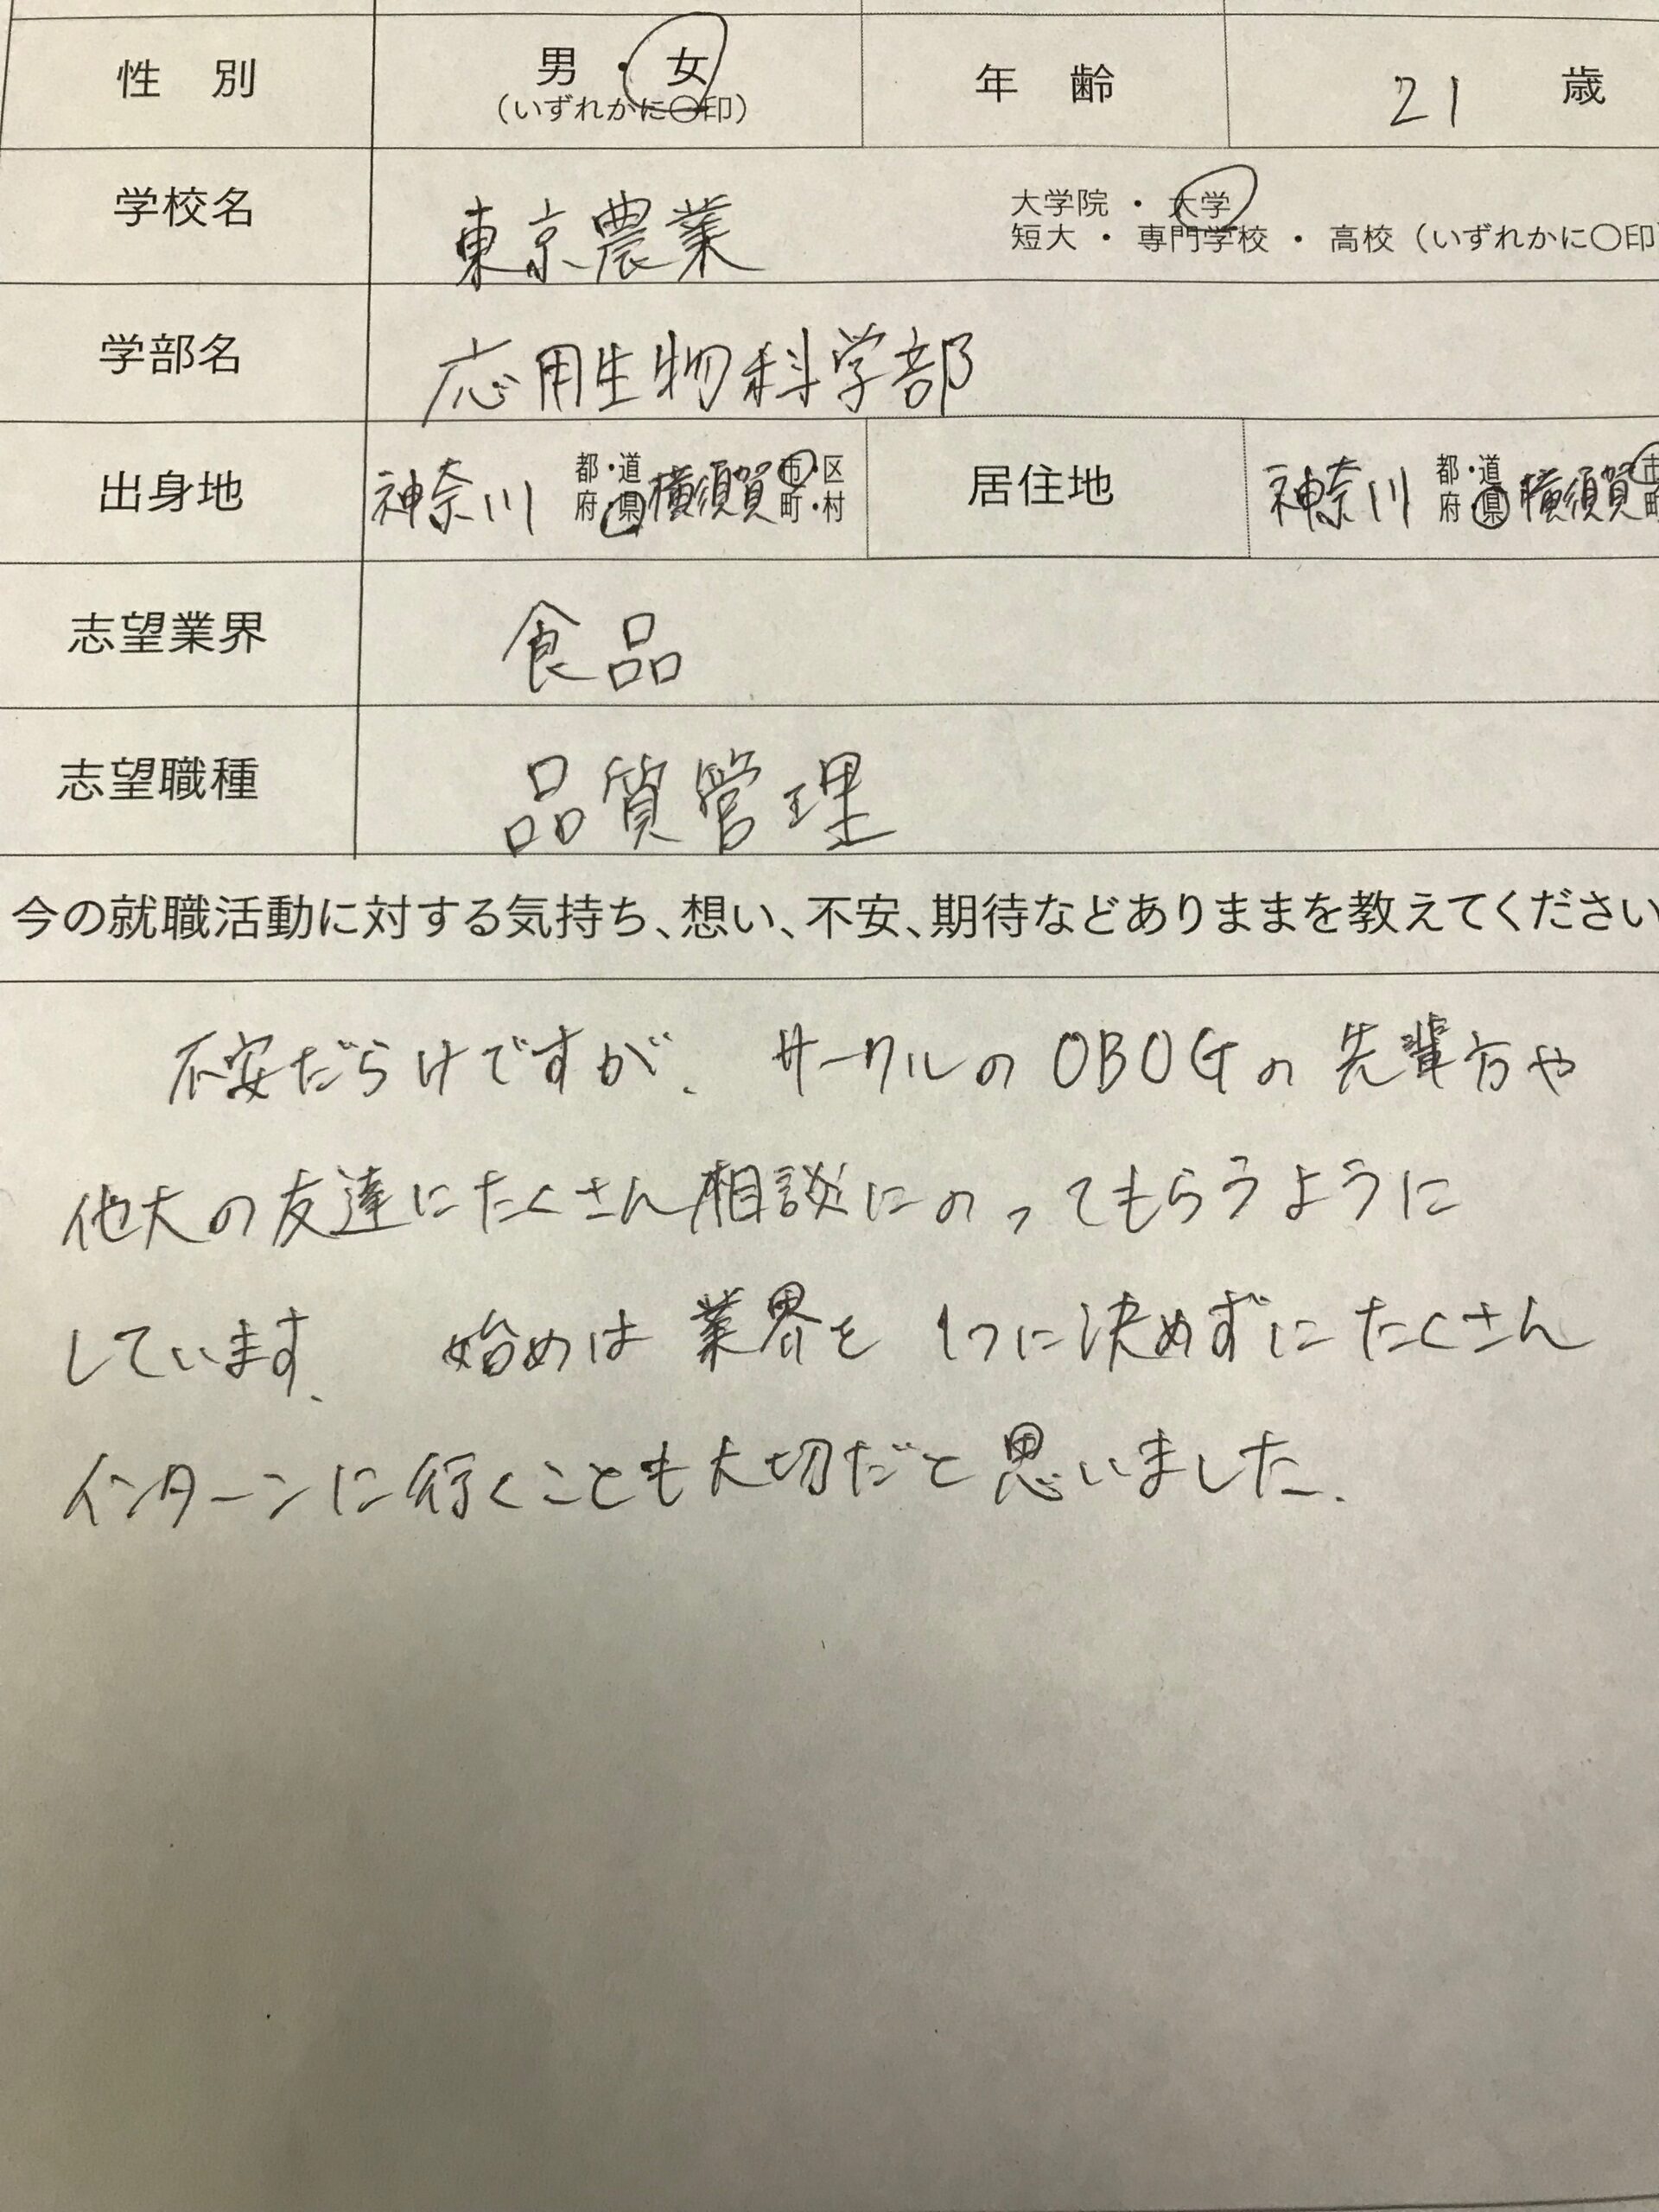 性 別 男 ・ 女 (いずれかに〇印) 年 齢 21 歳
学校名 東京農業 大学院 ・ 大学
短大 ・ 専門学校 ・ 高校 (いずれかに〇印)
学部名 応用生物科学部
出身地 神奈川 都・道 府・県 横須賀 市・区 町・村 居住地 神奈川 都・道 府・県 横須賀 市 町
志望業界 食品
志望職種 品質管理
今の就職活動に対する気持ち、想い、不安、期待などありままを教えてください
不安だらけですが、サークルのOBOGの先輩方や
他大の友達にたくさん相談にのってもらうように
しています、 始めは業界を1つに決めずにたくさん
インターンに行くことも大切だと思いました、